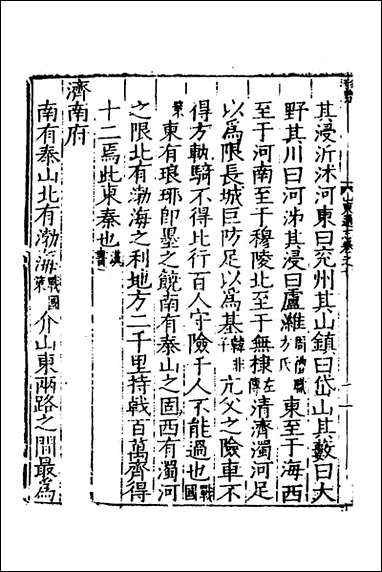 其浸沂沭河東曰兖州其山鎮曰岱山其藪曰大
野其川曰河泲其浸曰盧濰周禮職方氏東至于海西
至于河南至于穆陵北至于無棣左傳清濟濁河足
以爲限長城巨防足以爲基韓非子亢父之險車不
得方軌騎不得比行百人守險千人不能過也戰國
策東有琅琊即墨之饒南有泰山之固西有濁河
之限北有渤海之利地方二千里持戟百萬齊得
十二焉此東秦也漢書
濟南府
南有泰山北有渤海戰國策介山東兩路之間最爲